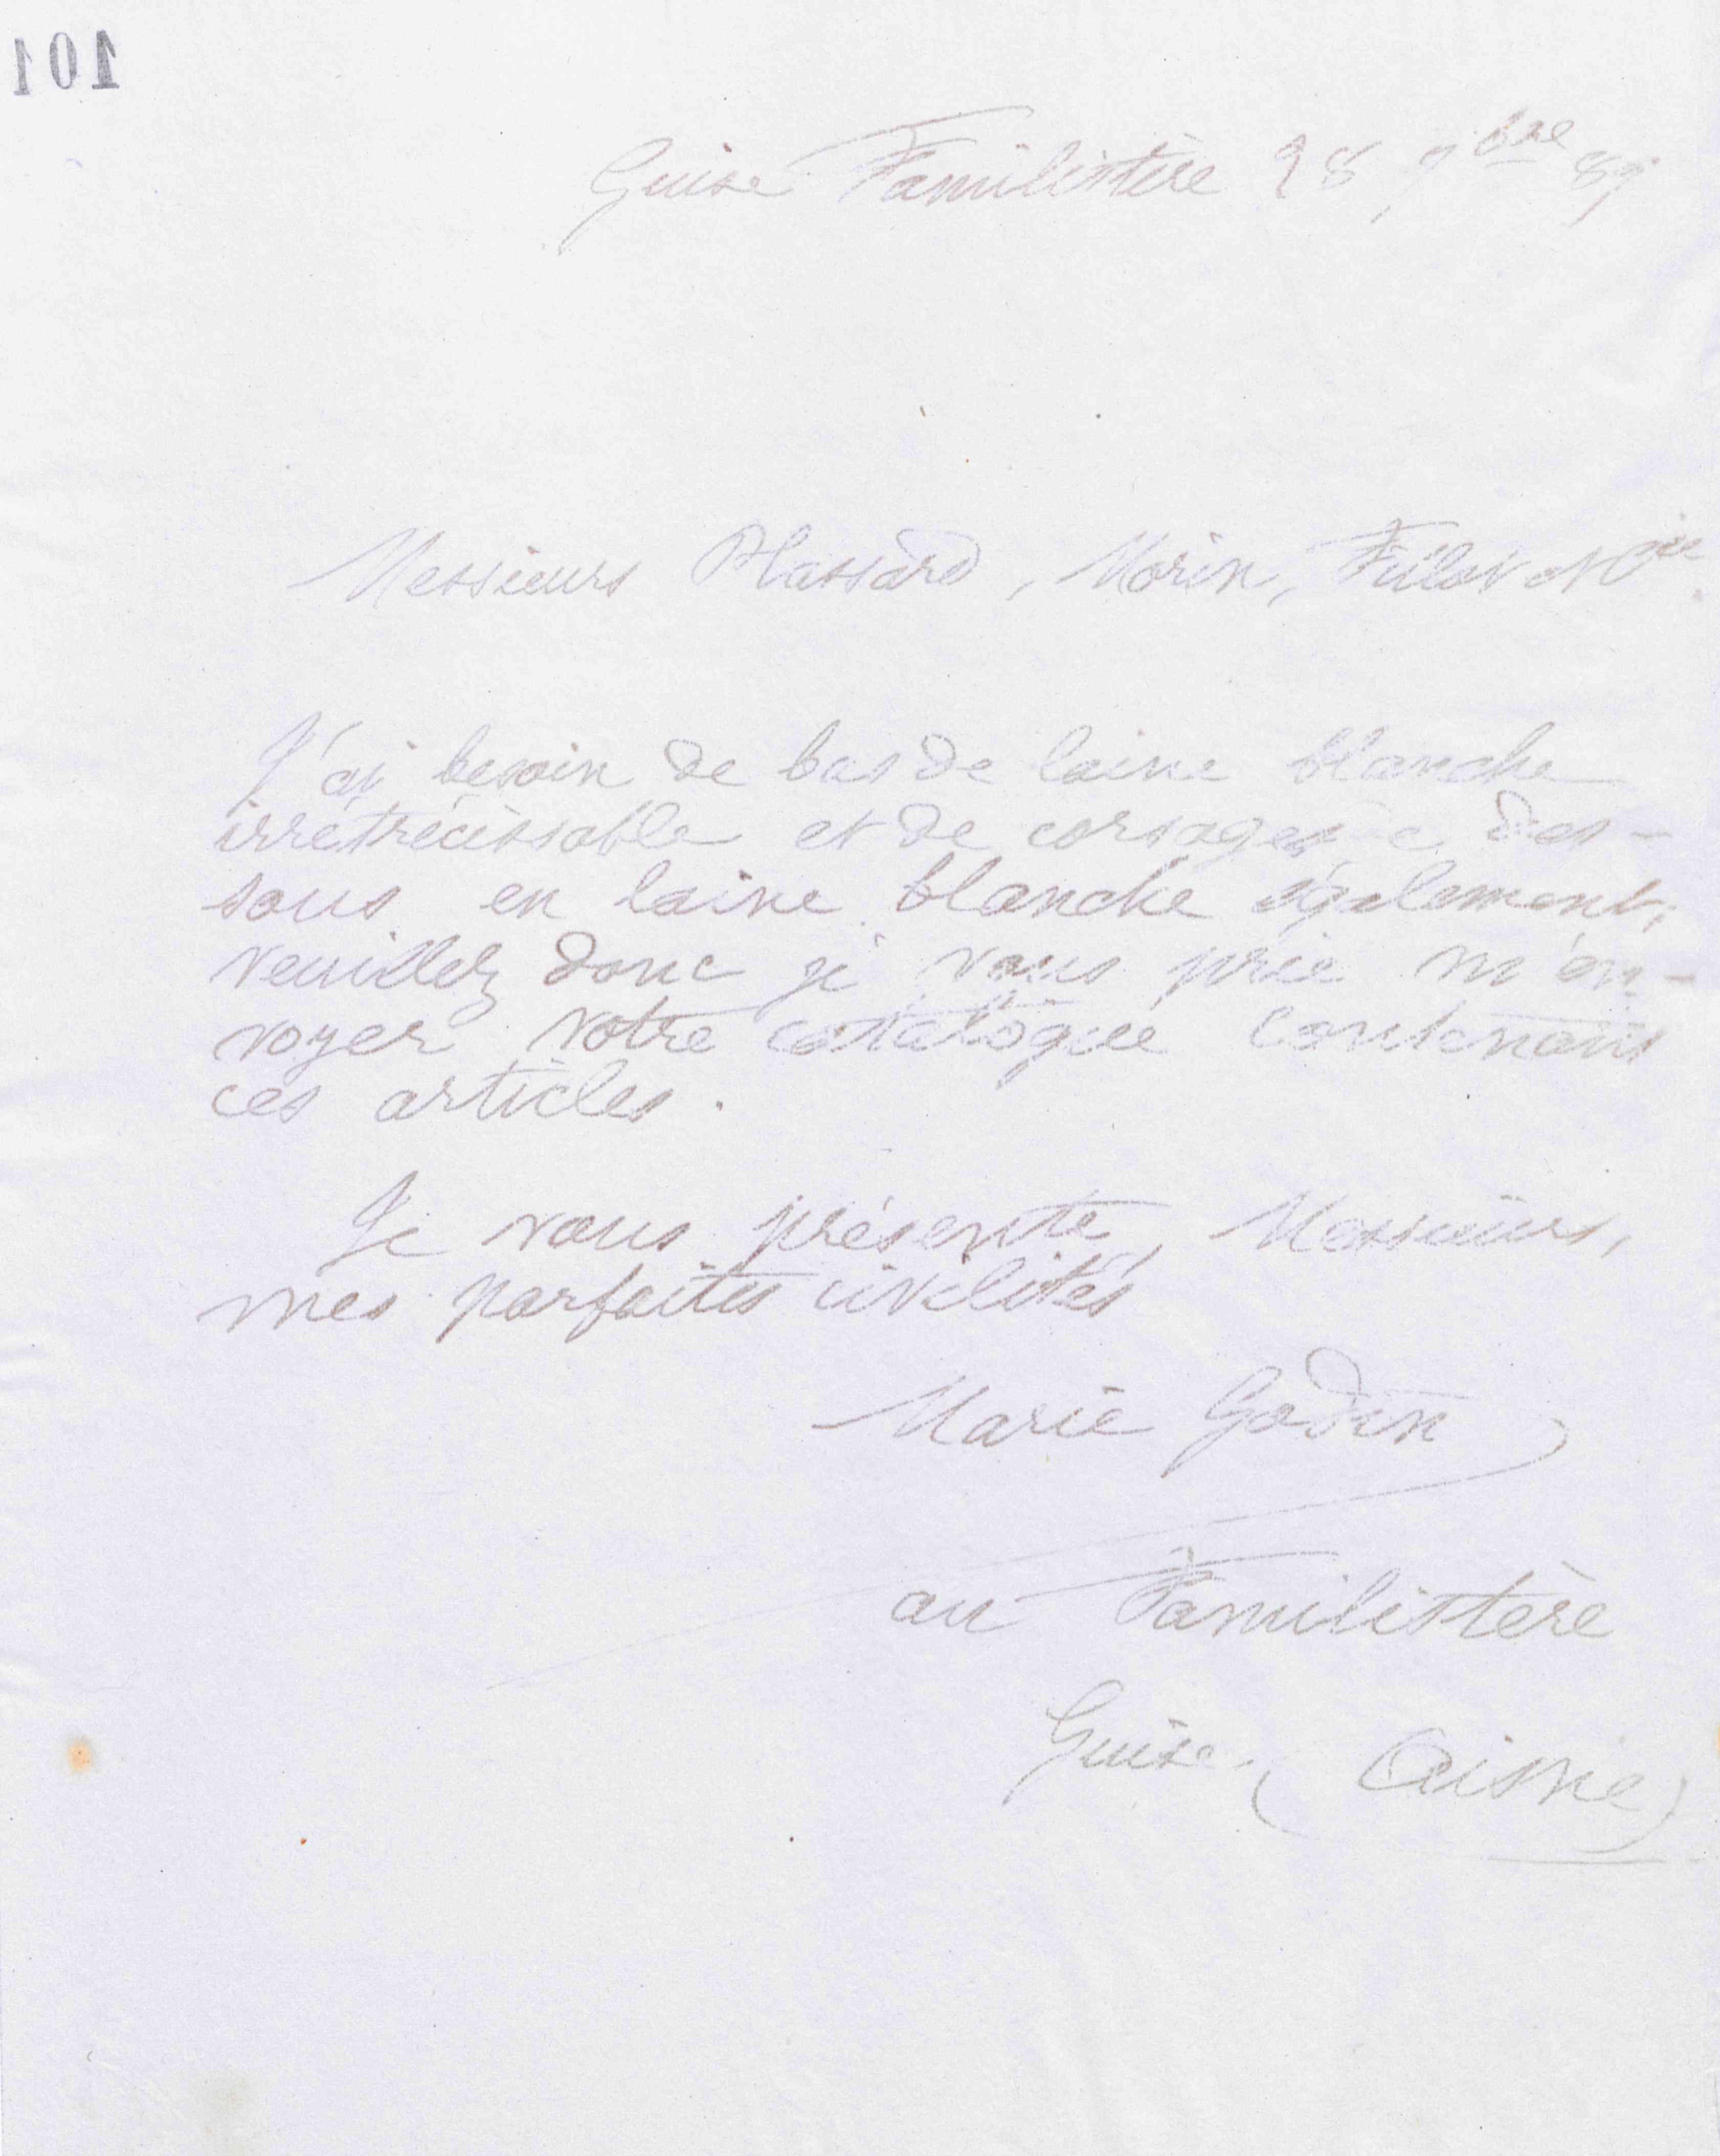 101
Guise Familistère 28 9bre 89
Messieurs Plassard, Morin, Fillot et Cie
J'ai besoin de bas de laine blanche
irrétrécissable et de corsages de des-
sous en laine blanche également,
veuillez donc je vous prie m'en-
voyer votre catalogue contenant
ces articles.
Je vous présente, Messieurs,
mes parfaites civilités
Marie Godin
au Familistère
Guise (Aisne)